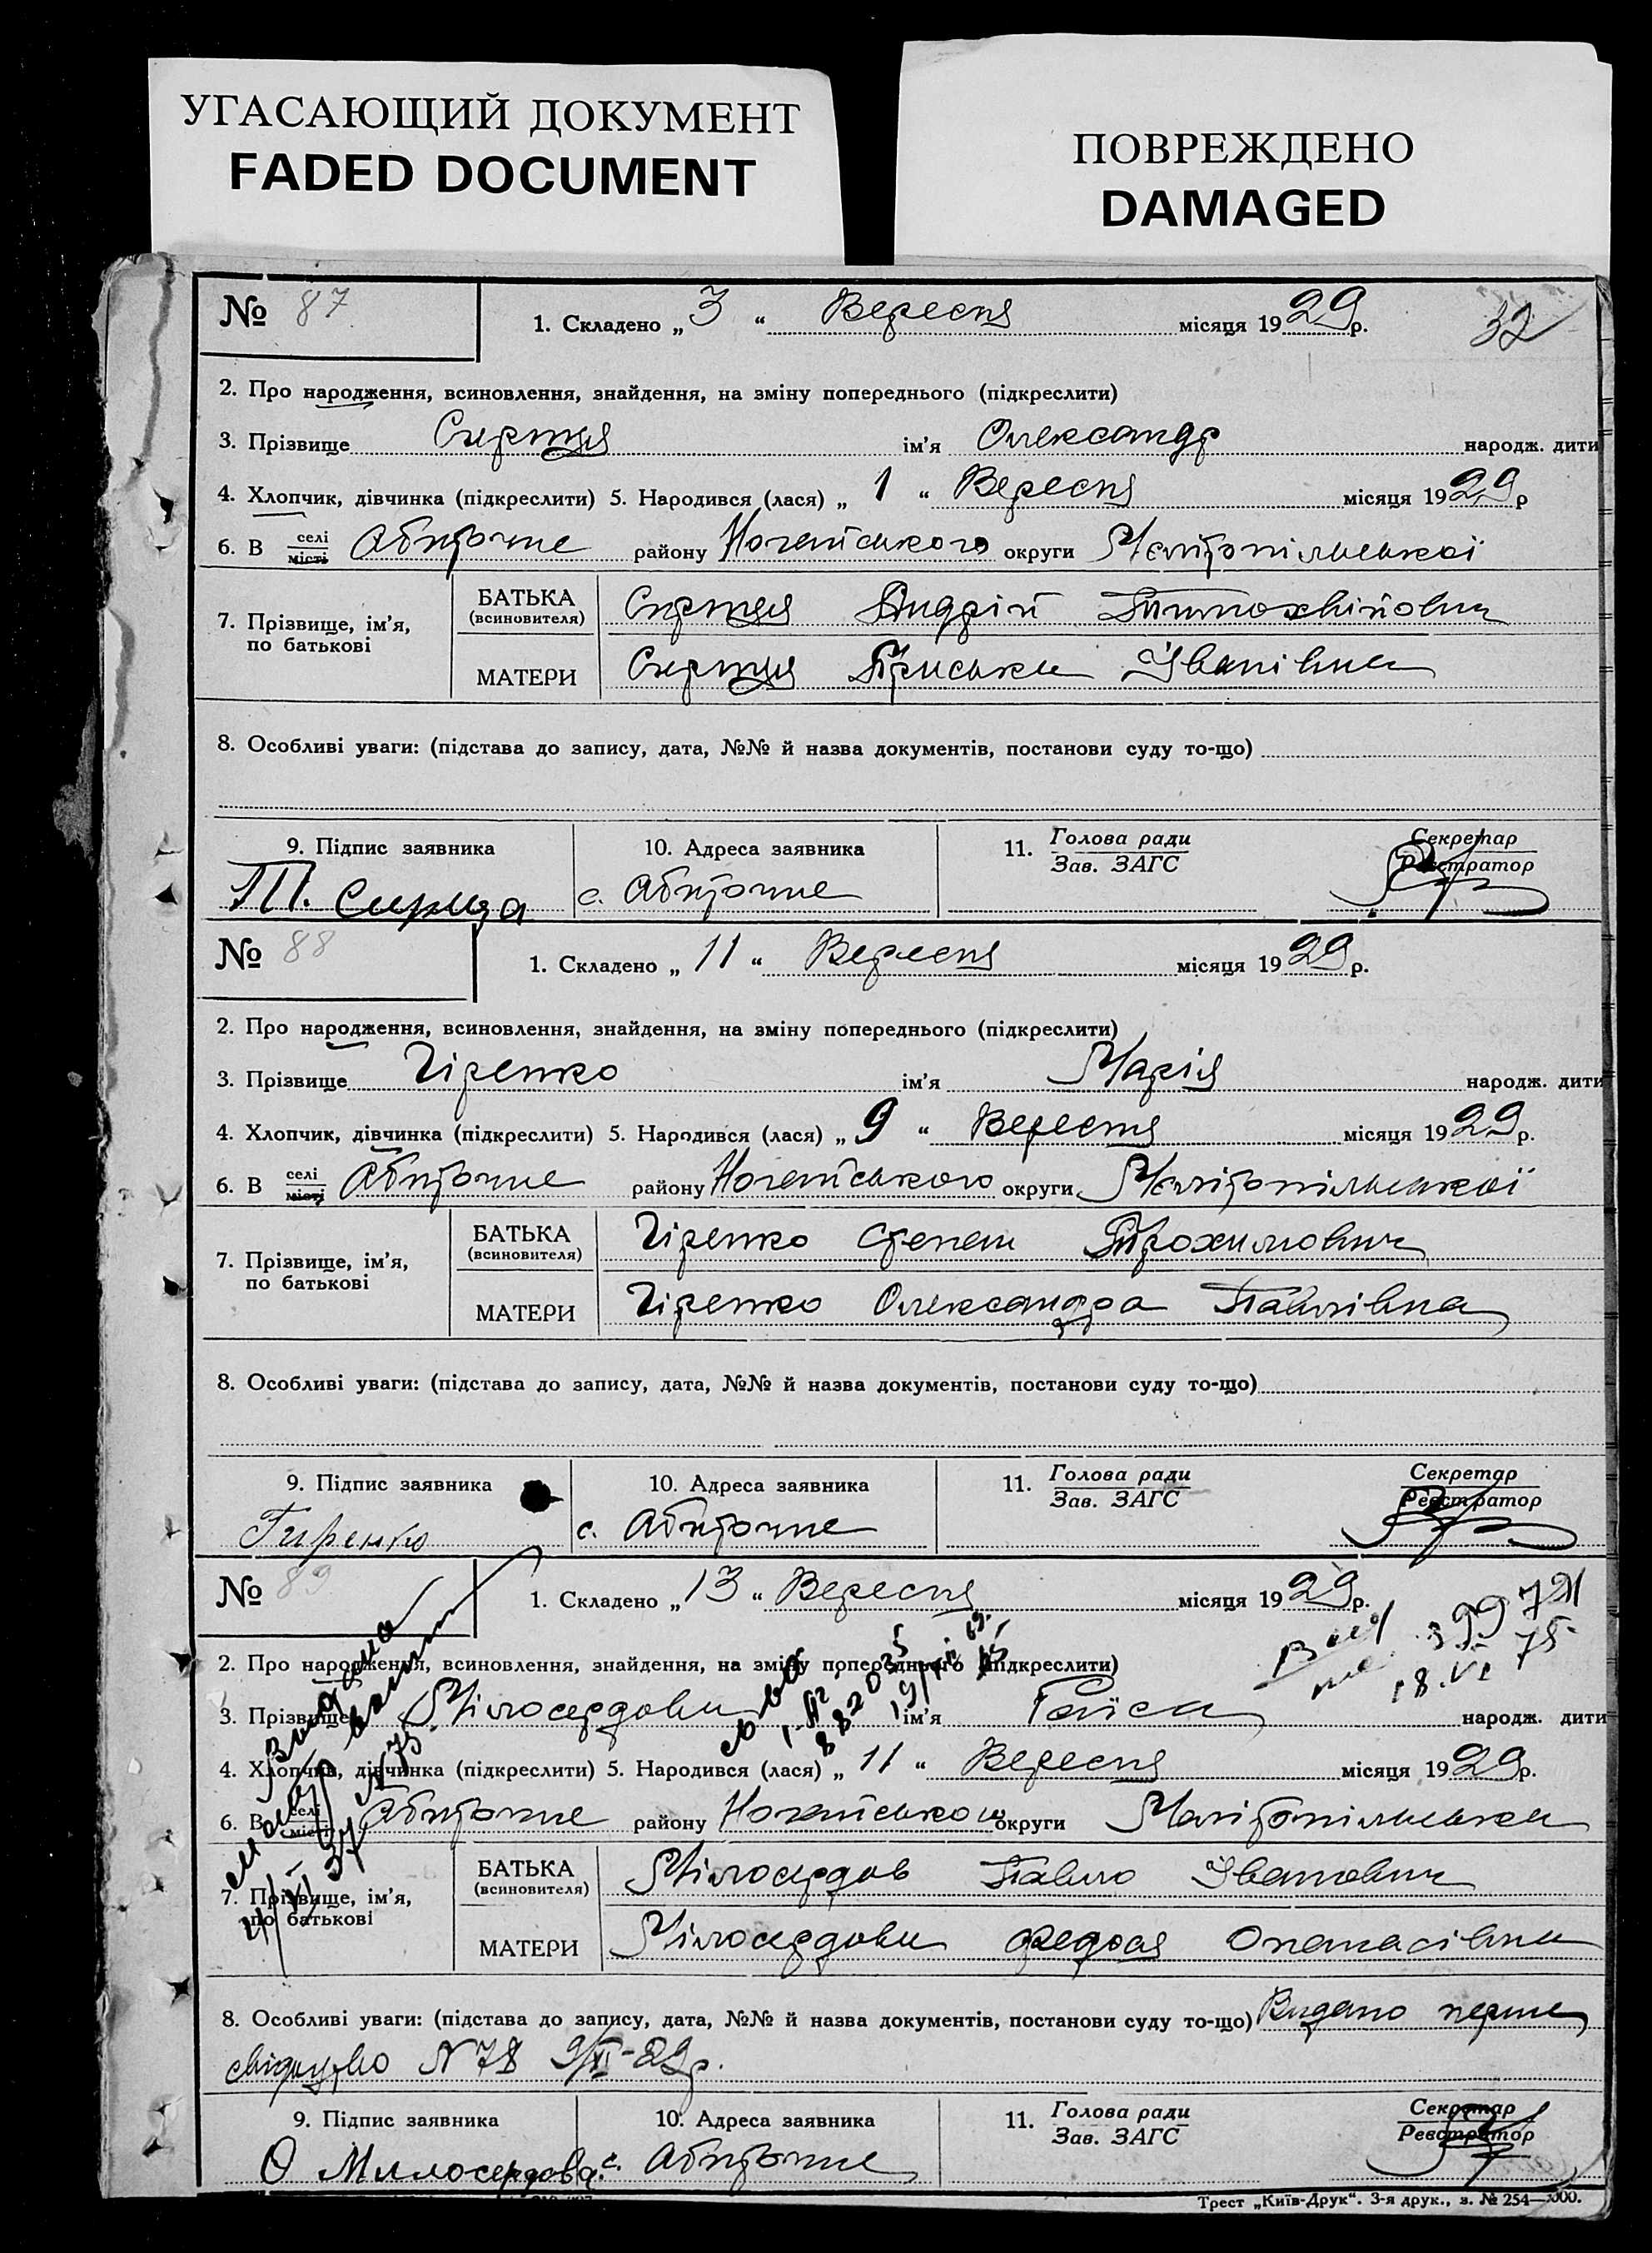 УГАСАЮЩИЙ ДОКУМЕНТ
FADED DOCUMENT
ПОВРЕЖДЕНО
DAMAGED
№ 87
1. Складено „ 3 “ Вересня місяця 1929 р.
32
2. Про народження, всиновлення, знайдення, на зміну попереднього (підкреслити)
3. Прізвище Сирття ім'я Олександр народж. дити
4. Хлопчик, дівчинка (підкреслити) 5. Народився (лася) „ 1 “ Вересня місяця 1929 р
6. В селі місті Абиточне району Ногайського округи Мелітопільської
7. Прізвище, ім'я, по батькові
БАТЬКА (всиновителя) Андрій
МАТЕРИ Іванівна
8. Особливі уваги: (підстава до запису, дата, №№ й назва документів, постанови суду то-що)
9. Підпис заявника 10. Адреса заявника 11. Голова ради Зав. ЗАГС Секретар Реєстратор
с. Абиточне
№ 88
1. Складено „ 11 “ Вересня місяця 1929 р.
2. Про народження, всиновлення, знайдення, на зміну попереднього (підкреслити)
3. Прізвище Гіренко ім'я Марія народж. дити
4. Хлопчик, дівчинка (підкреслити) 5. Народився (лася) „ 9 “ Вересня місяця 1929 р.
6. В селі місті Абиточне району Ногайського округи Мелітопільської
7. Прізвище, ім'я, по батькові
БАТЬКА (всиновителя) Гіренко Степан Трохимович
МАТЕРИ Гіренко Олександра Павлівна
8. Особливі уваги: (підстава до запису, дата, №№ й назва документів, постанови суду то-що)
9. Підпис заявника 10. Адреса заявника 11. Голова ради Зав. ЗАГС Секретар Реєстратор
Гиренко с. Абиточне
№ 89
1. Складено „ 13 “ Вересня місяця 1929 р.
2. Про народження, всиновлення, знайдення, на зміну попереднього (підкреслити)
3. Прізвище Мілосердова ім'я Раїса народж. дити
4. Хлопчик, дівчинка (підкреслити) 5. Народився (лася) „ 11 “ Вересня місяця 1929 р.
6. В селі місті Абиточне району Ногайського округи Мелітопільська
7. Прізвище, ім'я, по батькові
БАТЬКА (всиновителя) Мілосердов Павло Іванович
МАТЕРИ Мілосердова Федося Опанасівна
8. Особливі уваги: (підстава до запису, дата, №№ й назва документів, постанови суду то-що) Видано перше
свідоцтво N 78 9/XI-29р.
9. Підпис заявника 10. Адреса заявника 11. Голова ради Зав. ЗАГС Секретар Реєстратор
О Милосердова. с. Абиточне
Трест „Київ-Друк“. 3-я друк., з. № 254—